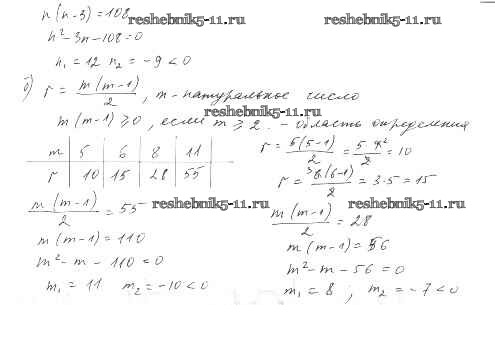 n(n-3)=108
reshebnik5-11.ru reshebnik5-11.ru
n²-3n-108=0
n₁=12 n₂=-9<0
б) r = m(m-1)/2, m - натуральное число
reshebnik5-11.ru
m(m-1)≥0, если m≥2. - область определения
m | 5 | 6 | 8 | 11
r | 10 | 15 | 28 | 55
r = 5(5-1)/2 = 5·4²/2 = 10
r = ³6(6-1)/2 = 3·5 = 15
m(m-1)/2 = 55
reshebnik5-11.ru reshebnik5-11.ru
m(m-1)=110
m²-m-110=0
m₁=11 m₂=-10<0
m(m-1)/2 = 28
m(m-1)=56
m²-m-56=0
m₁=8; m₂=-7<0